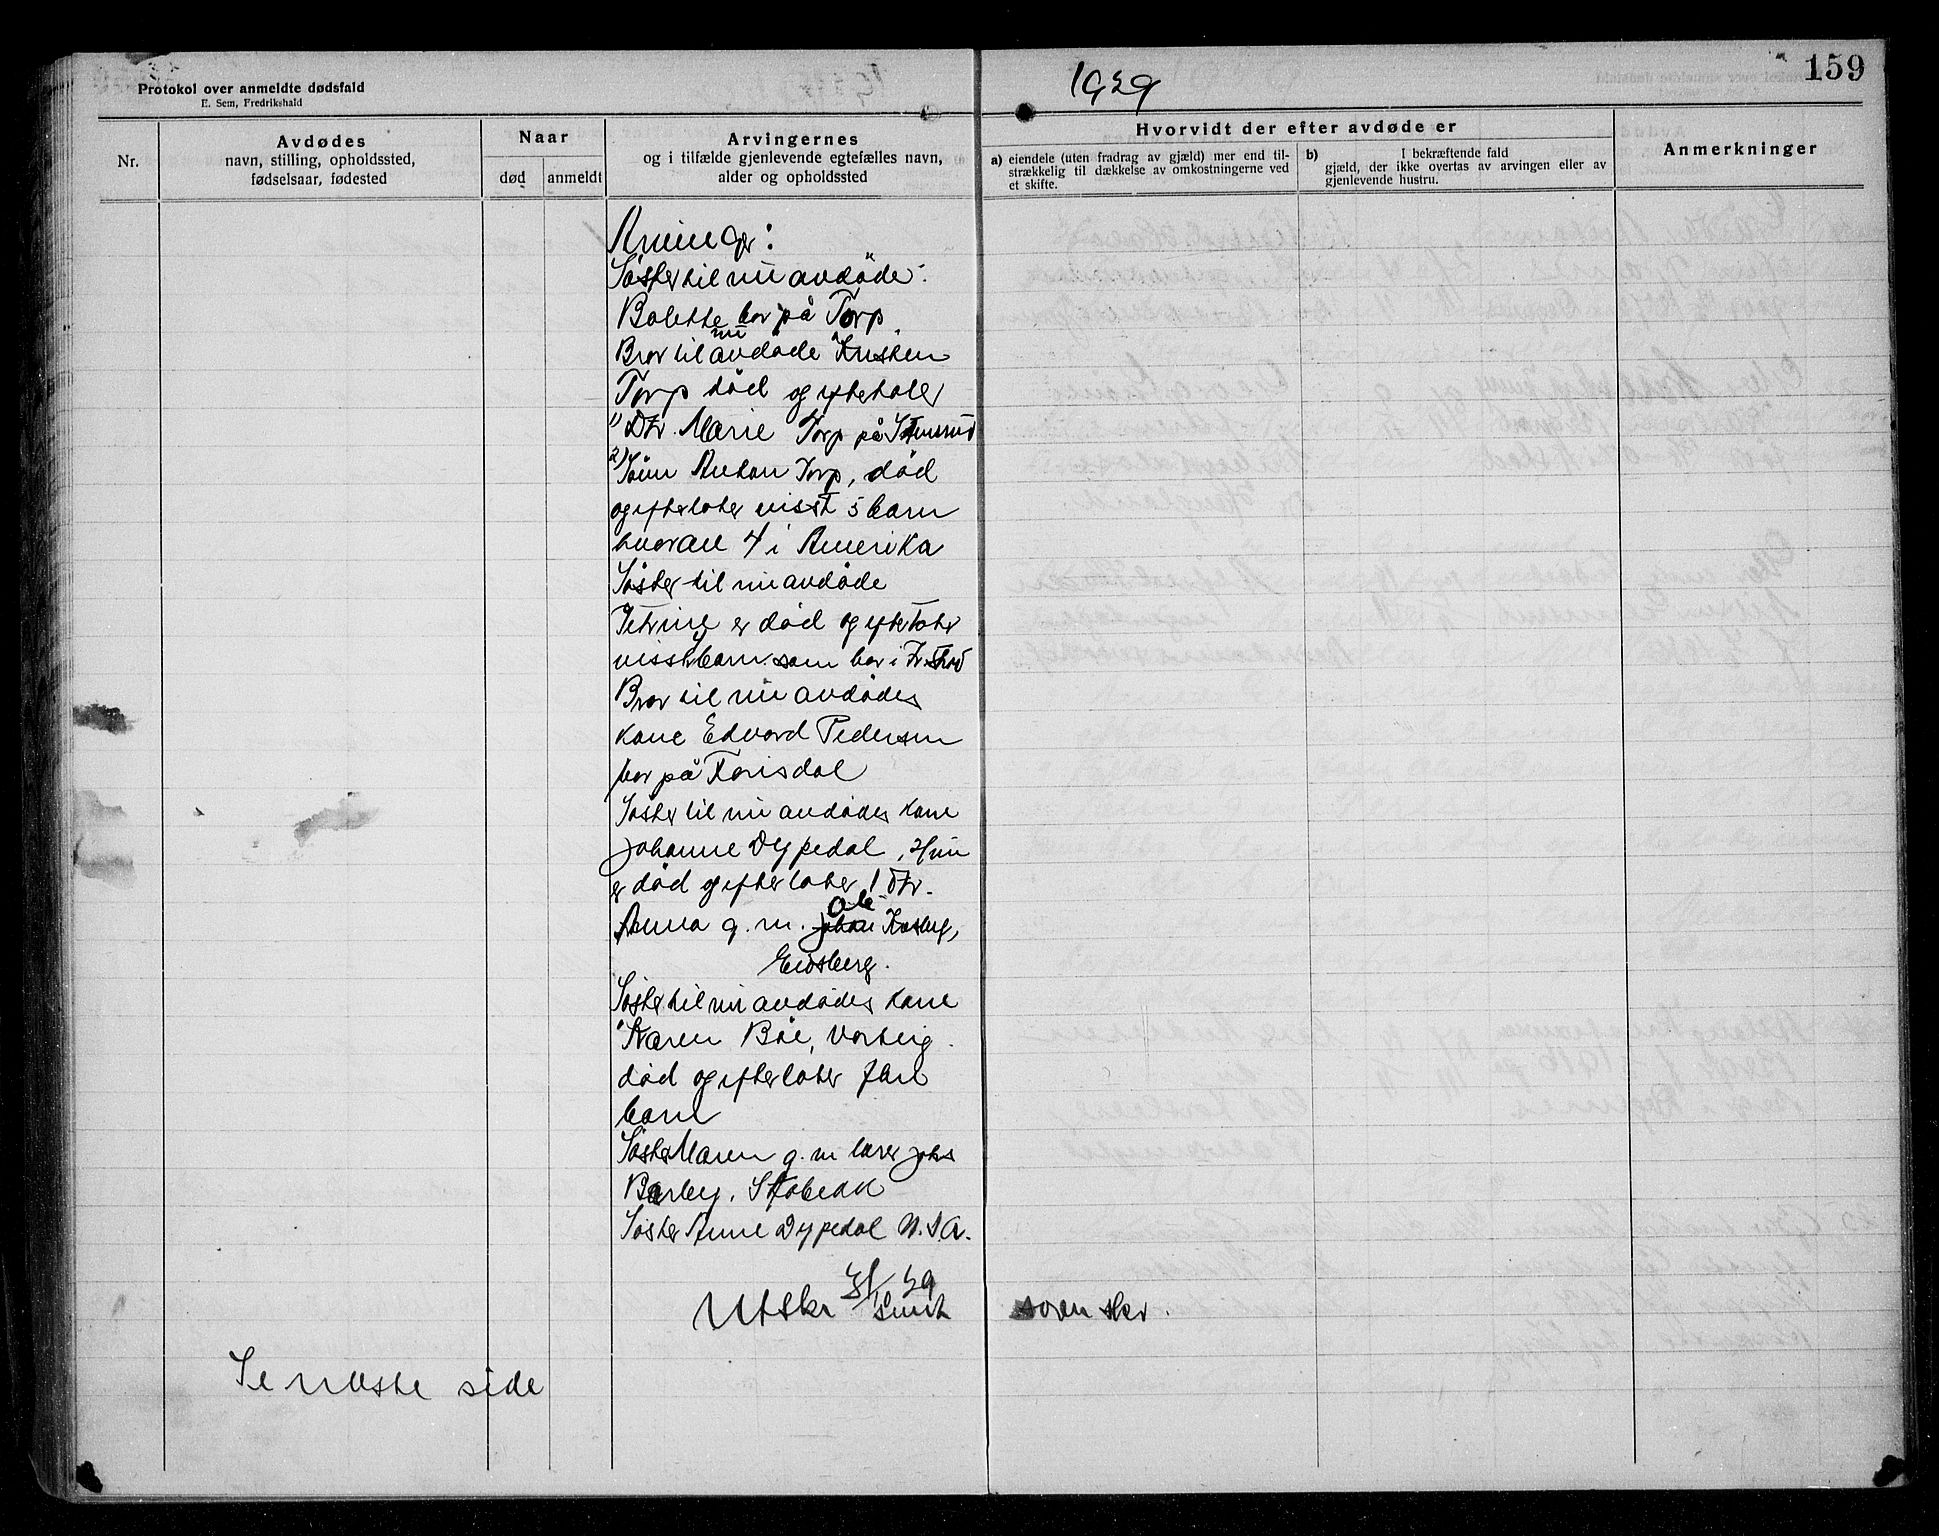 Protokol over anmeldte dødsfald
E. Sem, Fredrikshald
1929
159
Nr.
Avdødes
navn, stilling, opholdssted,
fødselsaar, fødested
Naar
død
anmeldt
Arvingernes
og i tilfælde gjenlevende egtefælles navn,
alder og opholdssted
Hvorvidt der efter avdøde er
a) eiendele (uten fradrag av gjæld) mer end til-
strækkelig til dækkelse av omkostningerne ved
et skifte.
b) I bekræftende fald
gjæld, der ikke overtas av arvingen eller av
gjenlevende hustru.
Anmerkninger
Arvinger:
Søster til nu avdøde:
Bolette bor på Torp
Bror til nu avdøde Kristen
Torp død og efterlater
1) Dtr. Marie Torp på Stensrud
2) Sønn Anton Torp, død
og efterlater visst 5 barn
hvorav 4 i Amerika
Søster til nu avdøde
Petrine er død og efterlater
visst barn som bor i Fr.stad
Bror til nu avdødes
kone Edvard Pedersen
bor på
Søster til nu avdødes kone
Johanne Dypedal, Hun
er død og efterlater 1 dtr.
Anna g. m. Johan Ole
Eidsberg.
Søster til nu avdødes kone
Karen Bøe, Varteig
død og efterlater flere
barn
Søster Maren g. m lærer Johs
Barby, Stabekk
Søster Anne Dypedal U.S.A.
Utskr
29
soren skr.
Se næste side